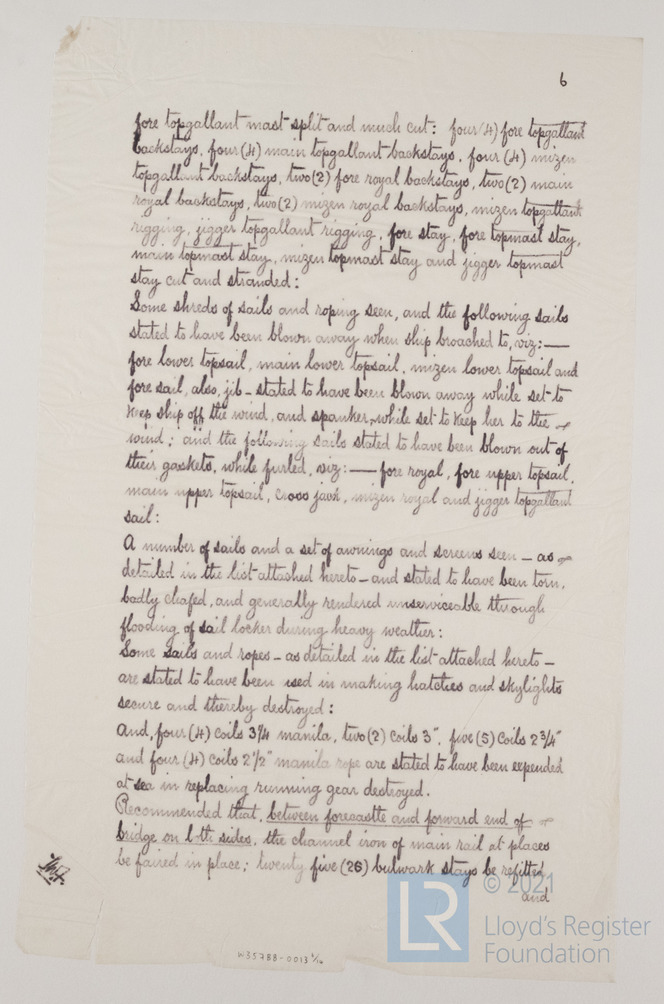 6
fore topgallant mast split and much cut: four (4) fore topgallant
backstays, four (4) main topgallant backstays, four (4) mizen
topgallant backstays, two (2) fore royal backstays, two (2) main
royal backstays, two (2) mizen royal backstays, mizen topgallant
rigging, jigger topgallant rigging, fore stay, fore topmast stay,
main topmast stay, mizen topmast stay and jigger topmast
stay cut and stranded:
Some shreds of sails and roping seen, and the following sails
stated to have been blown away when ship broached to, viz:—
fore lower topsail, main lower topsail, mizen lower topsail and
fore sail, also, jib – stated to have been blown away while set to
keep ship off the wind, and spanker, while set to keep her to the
wind; and the following sails stated to have been blown out of
their gaskets, while furled, viz:— fore royal, fore upper topsail,
main upper topsail, cross jack, mizen royal and jigger topgallant
sail:
A number of sails and a set of awnings and screens seen – as
detailed in the list attached hereto – and stated to have been torn,
badly chafed, and generally rendered unserviceable through
flooding of sail locker during heavy weather:
Some sails and ropes – as detailed in the list attached hereto –
are stated to have been used in making hatches and skylights
secure and thereby destroyed:
And, four (4) coils 3¼ manila, two (2) coils 3", five (5) coils 2¾"
and four (4) coils 2½" manila rope are stated to have been expended
at sea in replacing running gear destroyed.
Recommended that, between forecastle and forward end of
bridge on both sides, the channel iron of main rail at places
be faired in place; twenty five (26) bulwark stays be refitted
and
W35788-0013 6/16
© 2021
LR
Lloyd's Register
Foundation